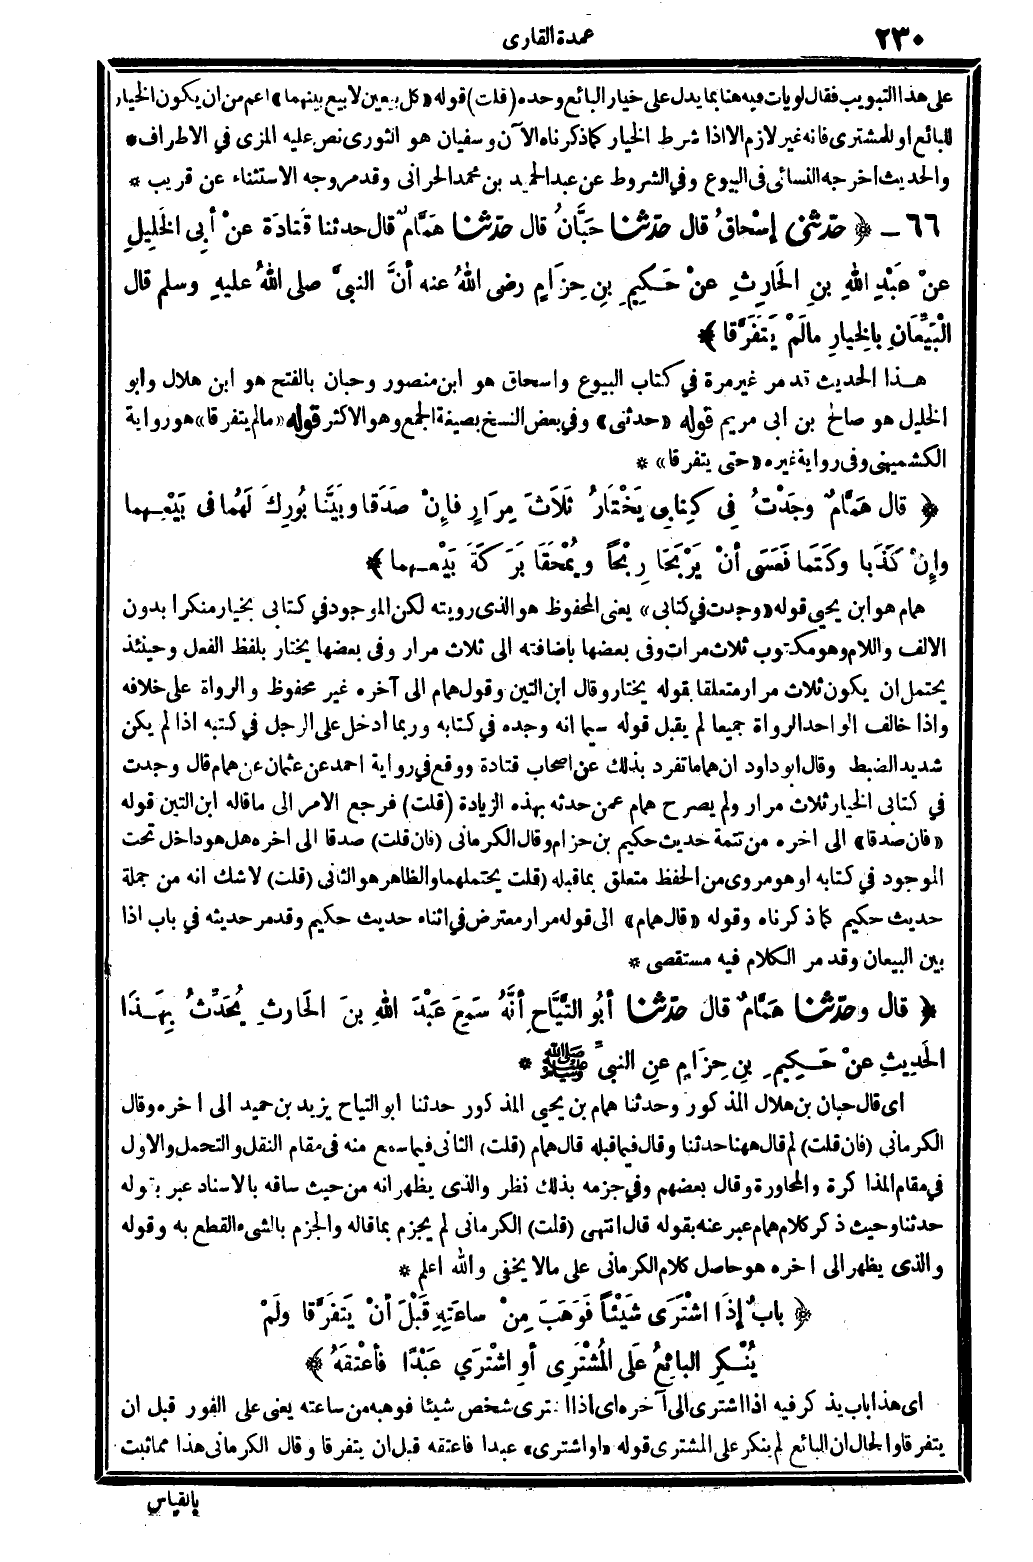 ٢٣٠
عمدة القارى
على هذا التبويب فقال لو يات فيه هنا بما يدل على خيار البائع وحده (قلت) قوله «كل بيعين لا بيع بينهما» اعم من ان يكون الخيار
للبائع او للمشترى فانه غير لازم الا اذا شرط الخيار كما ذكرناه الآن وسفيان هو الثورى نص عليه المزى في الاطراف *
والحديث اخرجه النسائى فى البيوع وفي الشروط عن عبد الحميد بن محمد الحرانى وقد مر وجه الاستثناء عن قريب *
٦٦ ــ ﴿ حَدَّثَنِى إِسْحَاقُ قال حَدَّثَنَا حَبَّانُ قال حَدَّثَنَا هَمَّامٌ قال حدثنا قَتادَة عنْ أبى الخَلِيلِ
عنْ عَبْدِ اللهِ بنِ الحَارِثِ عنْ حَكِيمِ بنِ حِزَامٍ رضى اللهُ عنه أنَّ النبىَّ صلى اللهُ عليهِ وسلم قال
الْبَيِّعَانِ بالخِيارِ مالَمْ يَتَفَرَّقا ﴾
هـذا الحديث قد مر غير مرة في كتاب البيوع واسحاق هو ابن منصور وحبان بالفتح هو ابن هلال وابو
الخليل هو صالح بن ابى مريم قوله «حدثنى» وفي بعض النسخ بصيغة الجمع وهو الاكثر قوله «مالم يتفرقا» هو رواية
الكشميهنى وفى رواية غيره «حتى يتفرقا» *
﴿ قال هَمَّامٌ وجَدْتُ فِى كِتابِى يَخْتَارُ ثَلَاثَ مِرَارٍ فإِنْ صَدَقا وبَيَّنا بُورِكَ لَهُما فى بَيْعِـهِما
وإِنْ كَذَبا وكَتَما فَعَسَى أنْ يَرْبَحَا رِبْحًا ويُمْحَقَا بَرَكَةَ بَيْعِـهِما ﴾
همام هو ابن يحيى قوله «وجدت في كتابى» يعنى المحفوظ هو الذى رويته لكن الموجود في كتابى بخيار منكرا بدون
الالف واللام وهو مكتوب ثلاث مرات وفى بعضها باضافته الى ثلاث مرار وفى بعضها يختار بلفظ الفعل وحينئذ
يحتمل ان يكون ثلاث مرار متعلقا بقوله يختار وقال ابن التين وقول همام الى آخره غير محفوظ والرواة على خلافه
واذا خالف الواحد الرواة جميعا لم يقبل قوله سيما انه وجده في كتابه وربما أدخل على الرجل في كتبه اذا لم يكن
شديد الضبط وقال ابو داود ان هماما تفرد بذلك عن اصحاب قتادة ووقع في رواية احمد عن عثمان عن همام قال وجدت
في كتابى الخيار ثلاث مرار ولم يصرح همام عمن حدثه بهذه الزيادة (قلت) فرجع الامر الى ما قاله ابن التين قوله
«فان صدقا» الى اخره من تتمة حديث حكيم بن حزام وقال الكرمانى (فان قلت) صدقا الى اخره هل هو داخل تحت
الموجود في كتابه او هو مروى من الحفظ متعلق بما قبله (قلت يحتملهما والظاهر هو الثانى (قلت) لاشك انه من جملة
حديث حكيم كما ذكرناه وقوله «قال همام» الى قوله مرار معترض في اثناء حديث حكيم وقد مر حديثه في باب اذا
بين البيعان وقد مر الكلام فيه مستقصى *
﴿ قال وحَدَّثَنَا هَمَّامٌ قالَ حَدَّثَنَا أبُو التَّيَّاحِ أنَّهُ سَمِعَ عَبْدَ اللهِ بنَ الحَارِثِ يُحَدِّثُ بِهَـذَا
الحَدِيثِ عنْ حَـكِيمِ بنِ حِزَامٍ عنِ النبىِّ ﷺ *
اى قال حبان بن هلال المذكور وحدثنا همام بن يحيى المذكور حدثنا ابو التياح يزيد بن حميد الى اخره وقال
الكرمانى (فان قلت) لم قال ههنا حدثنا وقال فيما قبله قال همام (قلت) الثانى فيما سمع منه فى مقام النقل والتحمل والاول
في مقام المذاكرة والمحاورة وقال بعضهم وفي جزمه بذلك نظر والذى يظهر انه من حيث ساقه بالاسناد عبر بقوله
حدثنا وحيث ذكر كلام همام عبر عنه بقوله قال انتهى (قلت) الكرمانى لم يجزم بما قاله والجزم بالشىء القطع به وقوله
والذى يظهر الى اخره هو حاصل كلام الكرمانى على مالا يخفى والله اعلم *
﴿ بابٌ إذَا اشْتَرَى شَيْئًا فَوَهَبَ مِنْ ساعَتِهِ قَبْلَ أنْ يَتَفَرَّقا ولَمْ
يُنْـكِرِ البائِعُ عَلَى المُشْتَرِى أوِ اشْتَرَى عَبْدًا فأعْتَقَهُ ﴾
اى هذا باب يذكر فيه اذا اشترى الى آخره اى اذا اشترى شخص شيئا فوهبه من ساعته يعنى على الفور قبل ان
يتفرقا والحال ان البائع لم ينكر على المشترى قوله «او اشترى» عبدا فاعتقه قبل ان يتفرقا وقال الكرمانى هذا مما ثبت
بالقياس